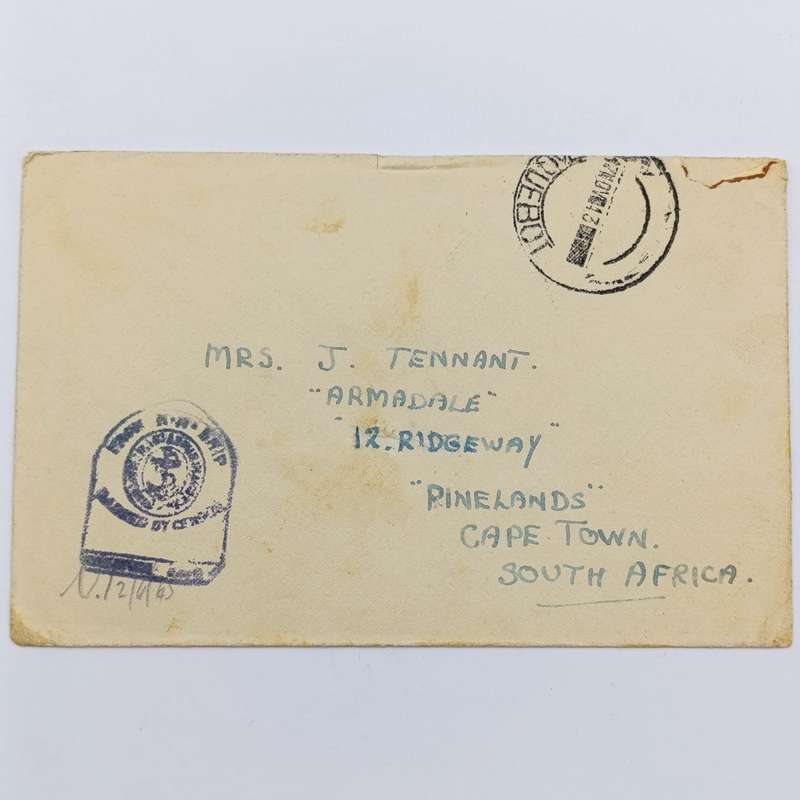 MRS. J. TENNANT.
"ARMADALE"
"12. RIDGEWAY"
"PINELANDS"
CAPE TOWN.
SOUTH AFRICA.
FROM H.M. SHIP
PASSED BY CENSOR